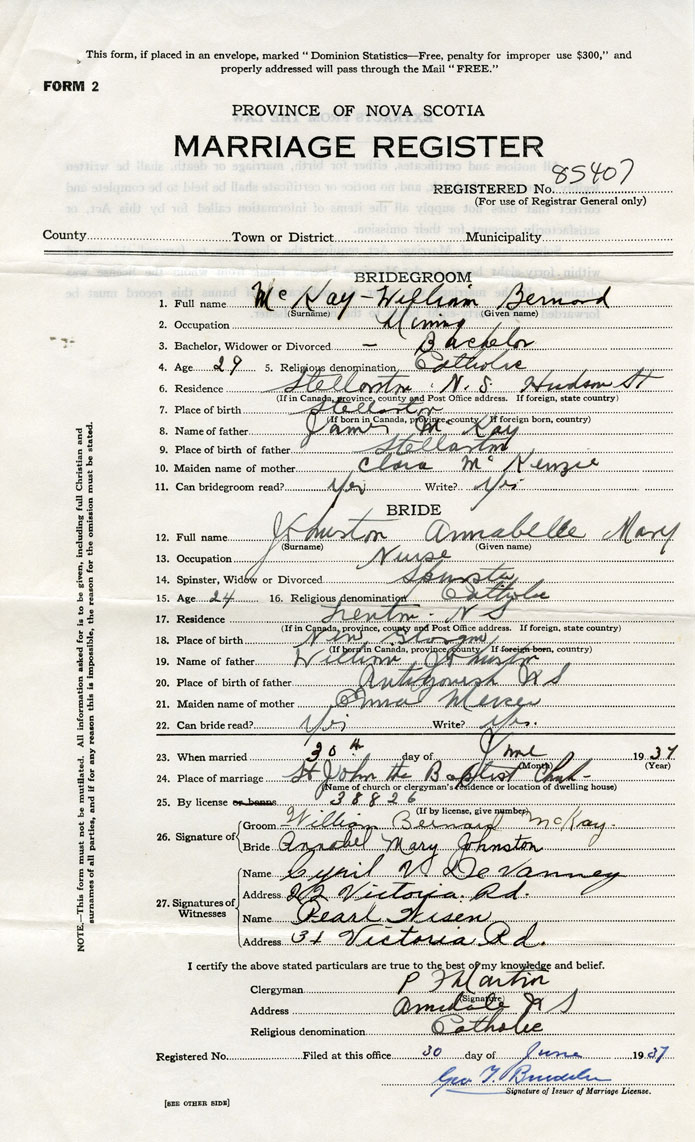 This form, if placed in an envelope, marked "Dominion Statistics—Free, penalty for improper use $300," and
properly addressed will pass through the Mail "FREE."
FORM 2
PROVINCE OF NOVA SCOTIA
MARRIAGE REGISTER
REGISTERED No. 85407
(For use of Registrar General only)
County Town or District Municipality
BRIDEGROOM
1. Full name McKay - William Bernard
(Surname) (Given name)
2. Occupation Mining
3. Bachelor, Widower or Divorced — Bachelor
4. Age 29 5. Religious denomination Catholic
6. Residence Stellarton N.S. Hudson St
(If in Canada, province, county and Post Office address. If foreign, state country)
7. Place of birth Stellarton
(If born in Canada, province, county. If foreign born, country)
8. Name of father James McKay
9. Place of birth of father Stellarton
10. Maiden name of mother Clara McKenzie
11. Can bridegroom read? Yes Write? Yes
BRIDE
12. Full name Johnston Annabelle Mary
(Surname) (Given name)
13. Occupation Nurse
14. Spinster, Widow or Divorced Spinster
15. Age 24 16. Religious denomination Catholic
17. Residence Trenton - N S
(If in Canada, province, county and Post Office address. If foreign, state country)
18. Place of birth New Glasgow
(If born in Canada, province, county. If foreign born, country)
19. Name of father William Johnston
20. Place of birth of father Antigonish N S
21. Maiden name of mother Anna
22. Can bride read? Yes Write? Yes.
23. When married 30th day of June 1937
(Month) (Year)
24. Place of marriage St John the Baptist Chch-
(Name of church or clergyman's residence or location of dwelling house)
25. By license or banns 38826
(If by license, give number)
26. Signature of
Groom William Bernard McKay.
Bride Annabel Mary Johnston
27. Signatures of Witnesses
Name Cyril V. DeVanney
Address 22 Victoria Rd.
Name Pearl
Address 31 Victoria Rd.
I certify the above stated particulars are true to the best of my knowledge and belief.
Clergyman P Martin
(Signature)
Address Armdale N S
Religious denomination Catholic
Registered No. Filed at this office 30 day of June 1937
Geo.
Signature of Issuer of Marriage License.
[SEE OTHER SIDE]
NOTE.—This form must not be mutilated. All information asked for is to be given, including full Christian and
surnames of all parties, and if for any reason this is impossible, the reason for the omission must be stated.